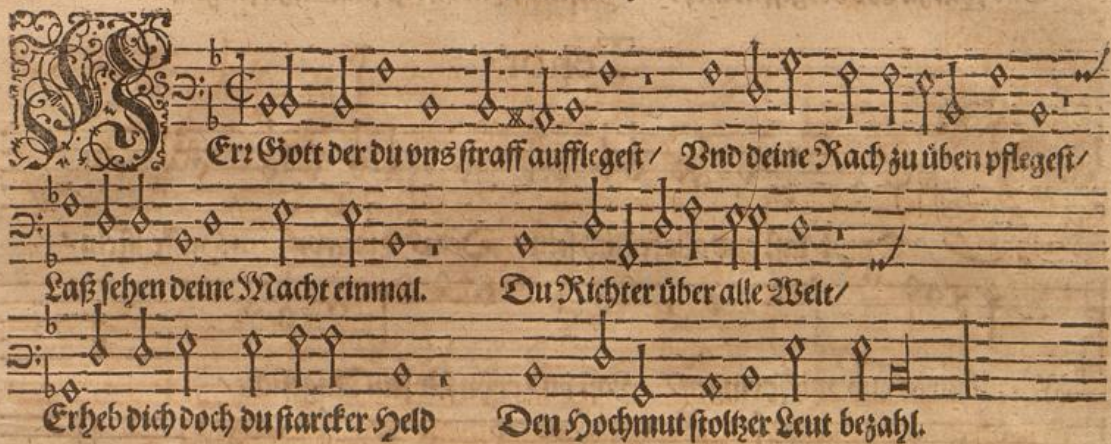 HErr Gott der du vns straff aufflegest / Vnd deine Rach zu üben pflegest /
Laß sehen deine Macht einmal. Du Richter über alle Welt /
Erheb dich doch du starcker Held Den Hochmut stoltzer Leut bezahl.